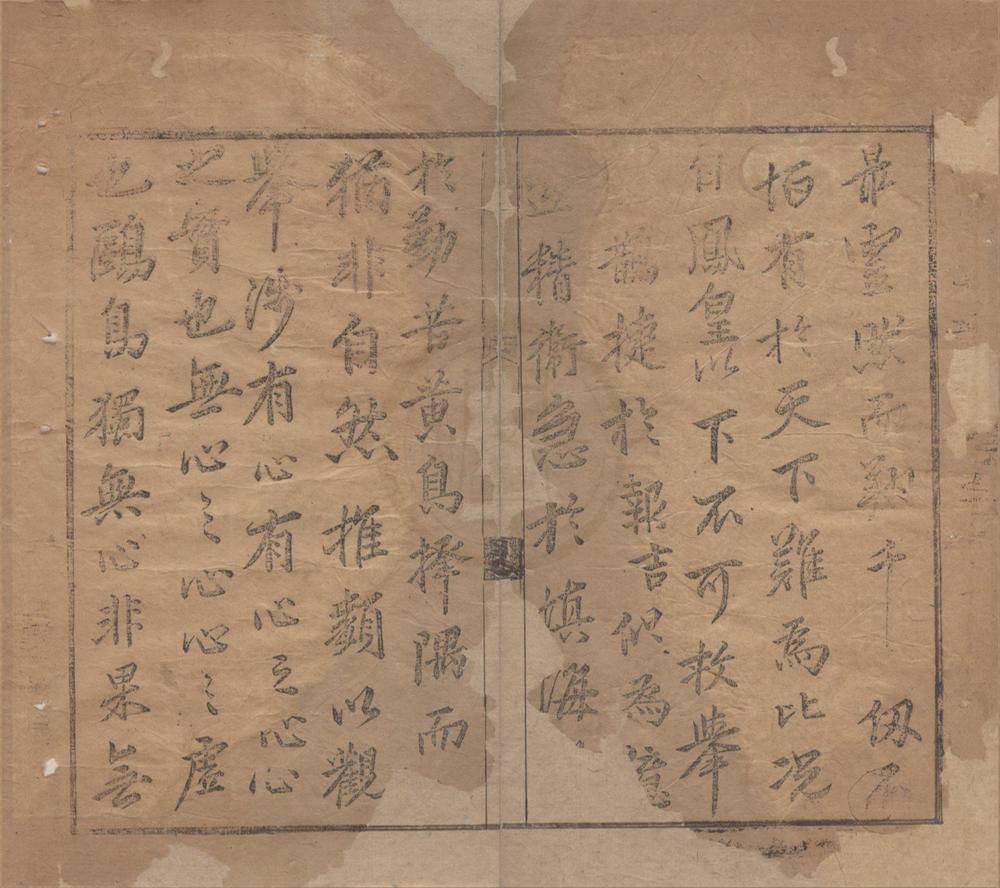 最靈然而翔千仞不
怕有於天下難為比况
自鳳皇以下不可枚舉
鵲捷於報吉似為意
精衛急於填海
於勤苦黃鳥擇隅而
猶非自然推類以觀
舉涉有心有心之心心
之實也無心之心心之虛
也鷗鳥獨無心非果無